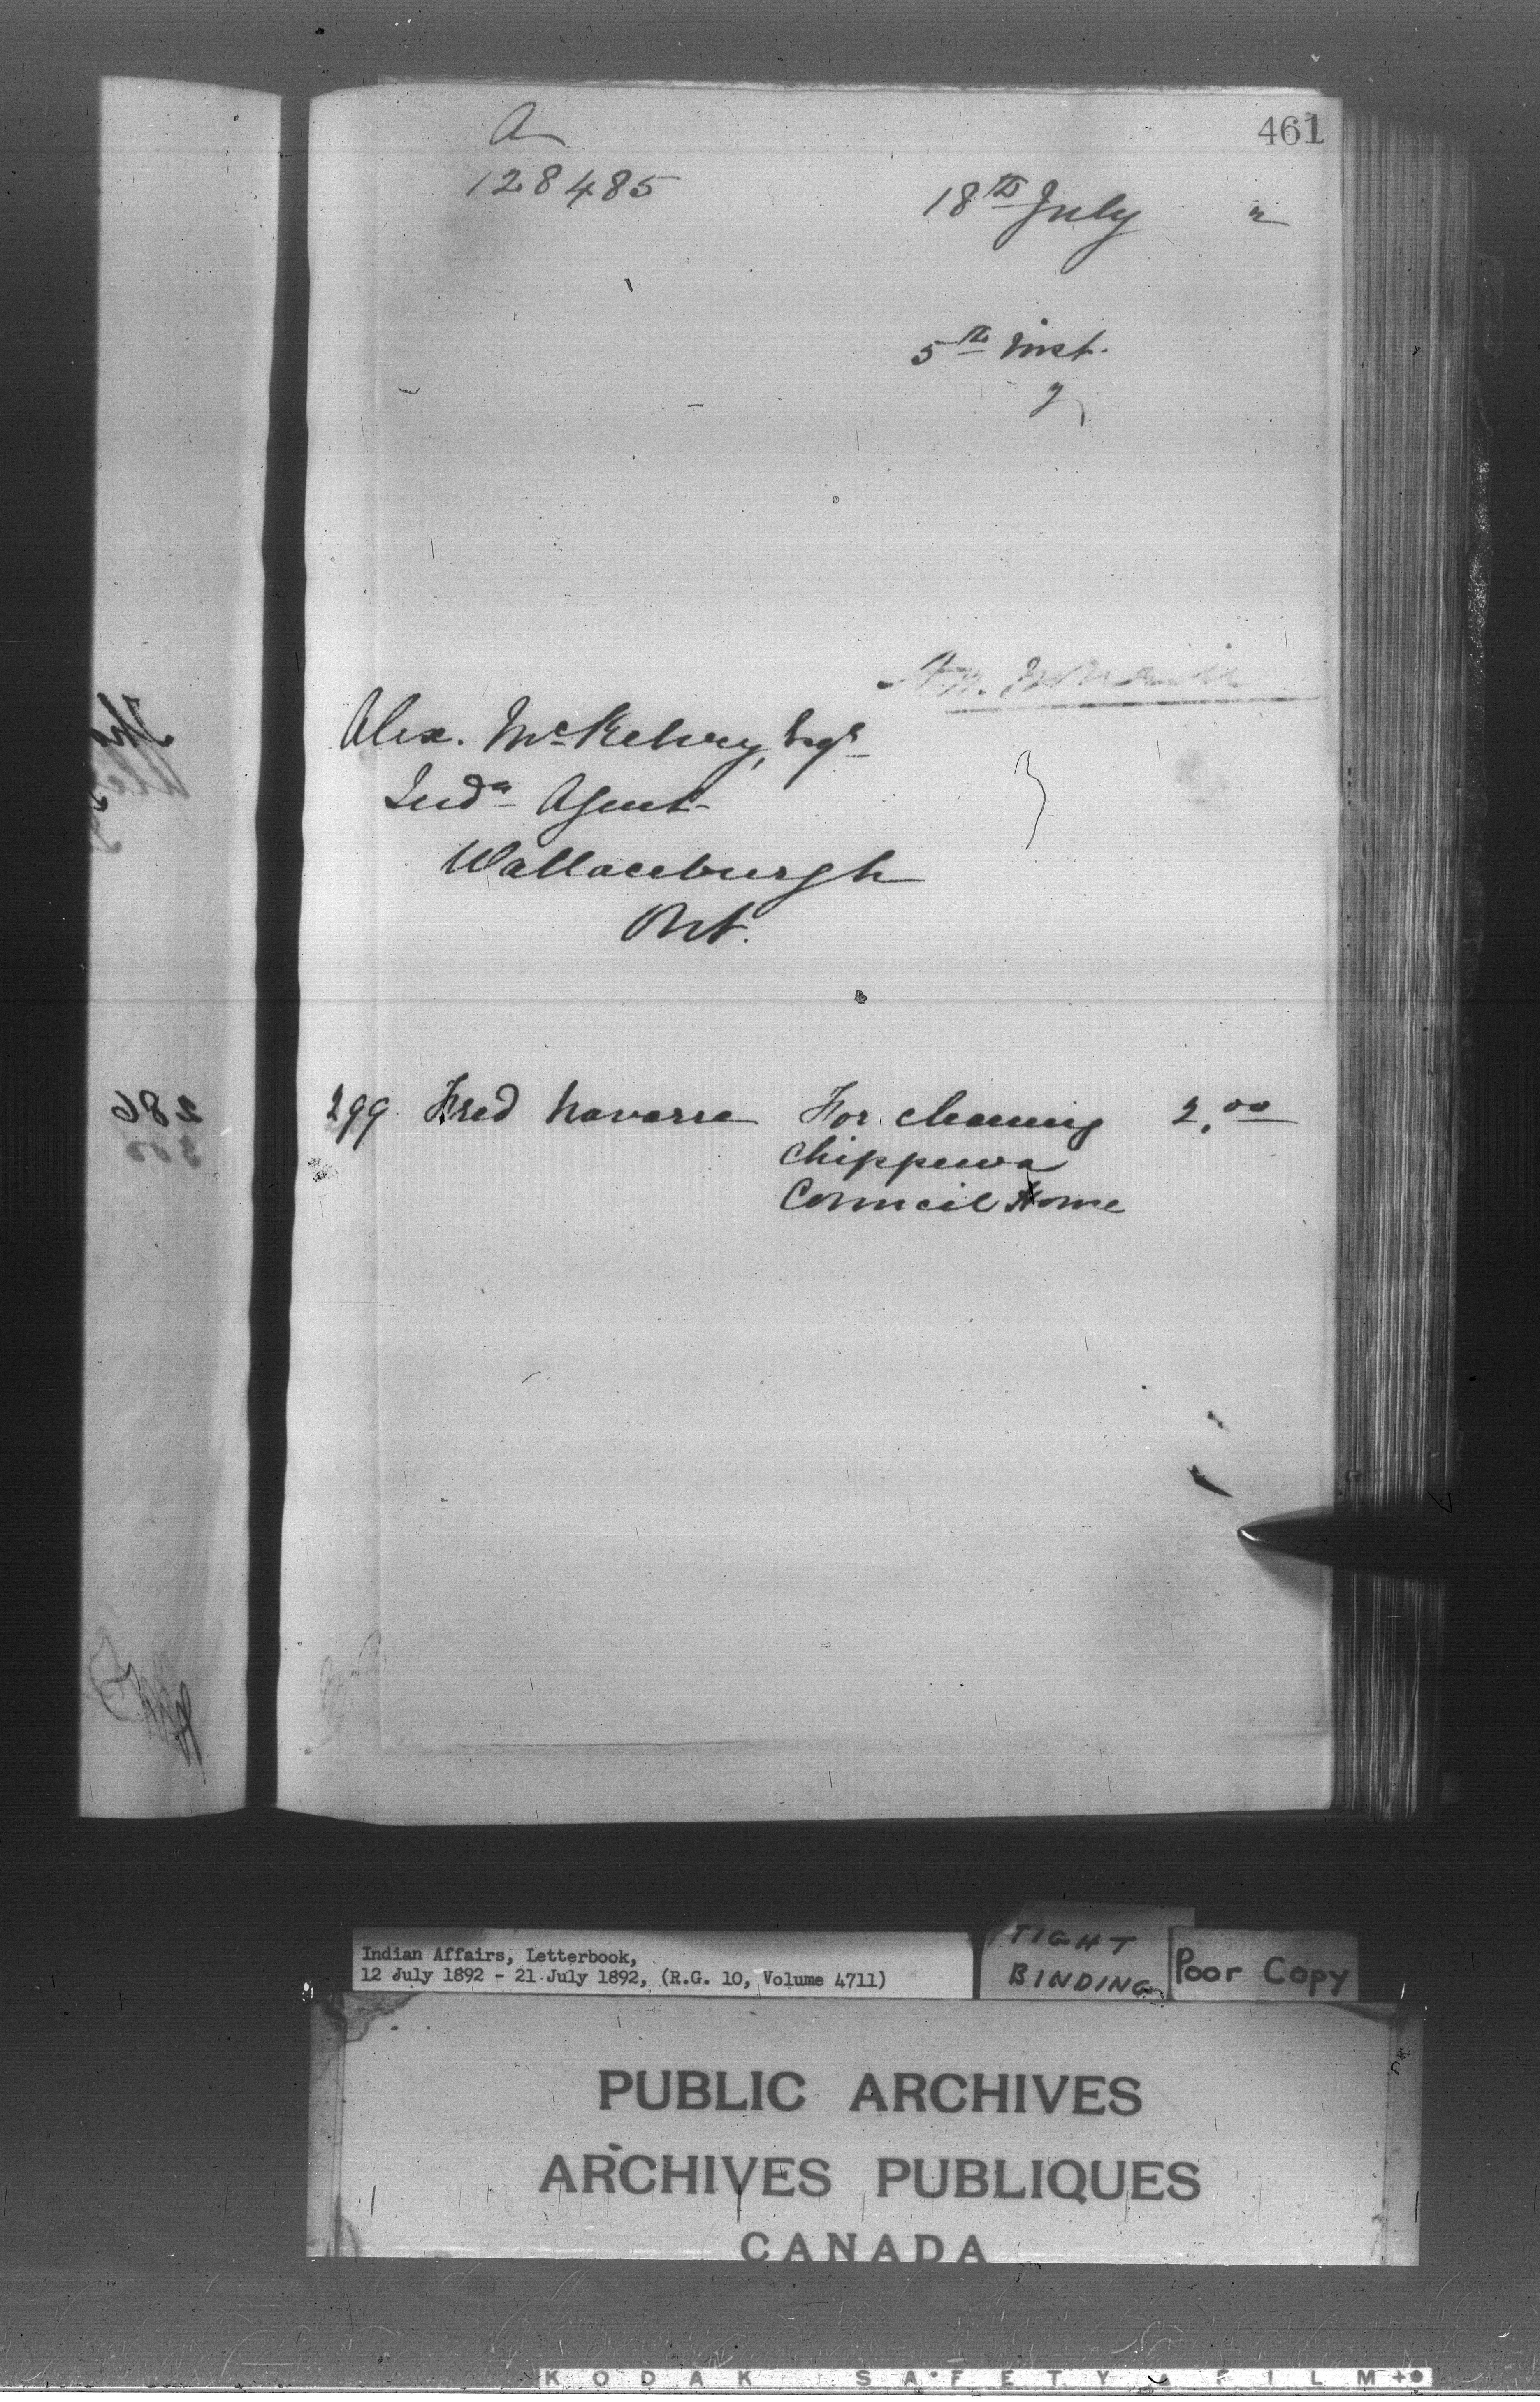 461
A
128485
18th July 2
5th inst.
Alex. McKelvey, Esqr
Indn Agent
Wallaceburgh
Ont.
299 Fred Navarre For cleaning 2.00
Chippewa
Council House
286
300
Indian Affairs, Letterbook,
12 July 1892 - 21 July 1892, (R.G. 10, Volume 4711)
TIGHT
BINDING
Poor Copy
PUBLIC ARCHIVES
ARCHIVES PUBLIQUES
CANADA
KODAK SAFETY FILM